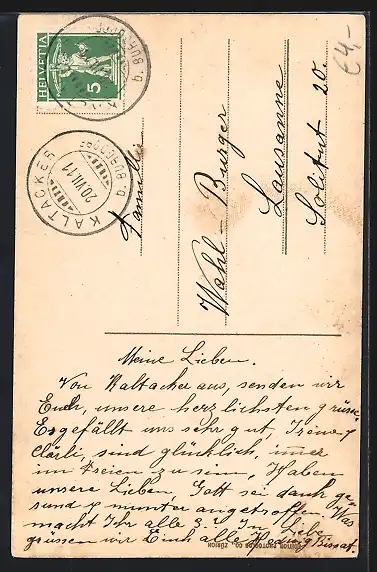 HELVETIA
5
KALTACKER
20.VII.11
64.-
Familie
Wahl-Burger
Lausanne
Solitut 20.
Meine Lieben.
Von Kaltacker aus, senden wir
Euch, unsere herzlichsten grüsse.
Es gefällt uns sehr gut,
Clärli, sind glücklich, immer
im Freien zu sein, Haben
unsere Lieben, Gott sei dank ge-
sund & munter angetroffen, Was
macht Ihr alle 3. In Liebe
grüssen wir Euch alle Hedwig